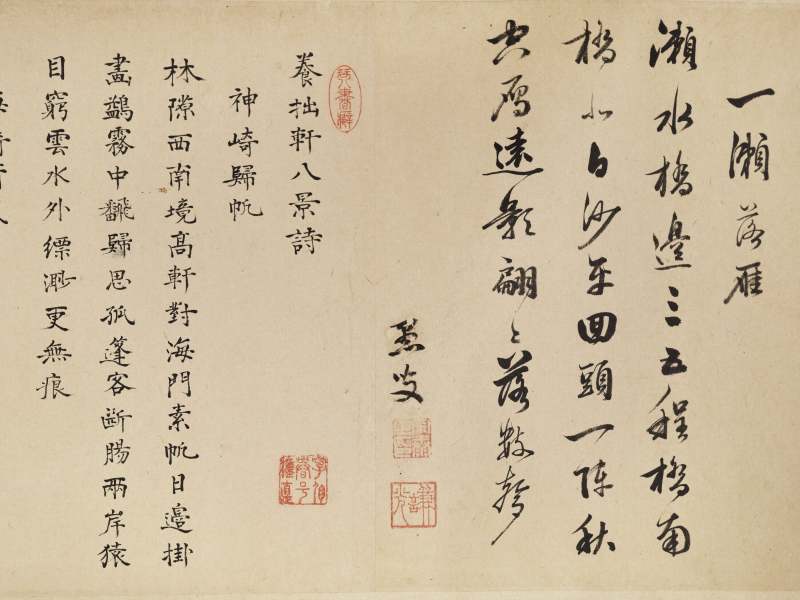 一瀬落雁
瀬水橋邊三五程橋南
橋北白沙平回頭一陣秋
空雁遠影翩〻落數聲
養拙軒八景詩
神崎歸帆
林隙西南境高軒對海門素帆日邊掛
畫鷁霧中飜歸思孤篷客斷腸兩岸猿
目窮雲水外縹渺更無痕